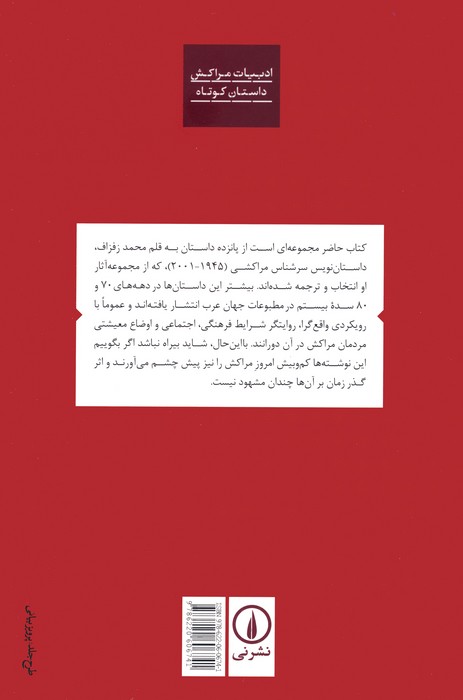 ادبیات مراکش
داستان کوتاه
کتاب حاضر مجموعه‌ای است از پانزده داستان به قلم محمد زفزاف،
داستان‌نویس سرشناس مراکشی (۱۹۴۵-۲۰۰۱)، که از مجموعه‌آثار
او انتخاب و ترجمه شده‌اند. بیشتر این داستان‌ها در دهه‌های ۷۰ و
۸۰ سدهٔ بیستم در مطبوعات جهان عرب انتشار یافته‌اند و عموماً با
رویکردی واقع‌گرا، روایتگر شرایط فرهنگی، اجتماعی و اوضاع معیشتی
مردمان مراکش در آن دورانند. بااین‌حال، شاید بیراه نباشد اگر بگوییم
این نوشته‌ها کم‌وبیش امروز مراکش را نیز پیش چشم می‌آورند و اثر
گذر زمان بر آن‌ها چندان مشهود نیست.
طرح جلد: پرویز بیانی
ISBN 978-622-06-0674-1
9786220606741
نشرنی